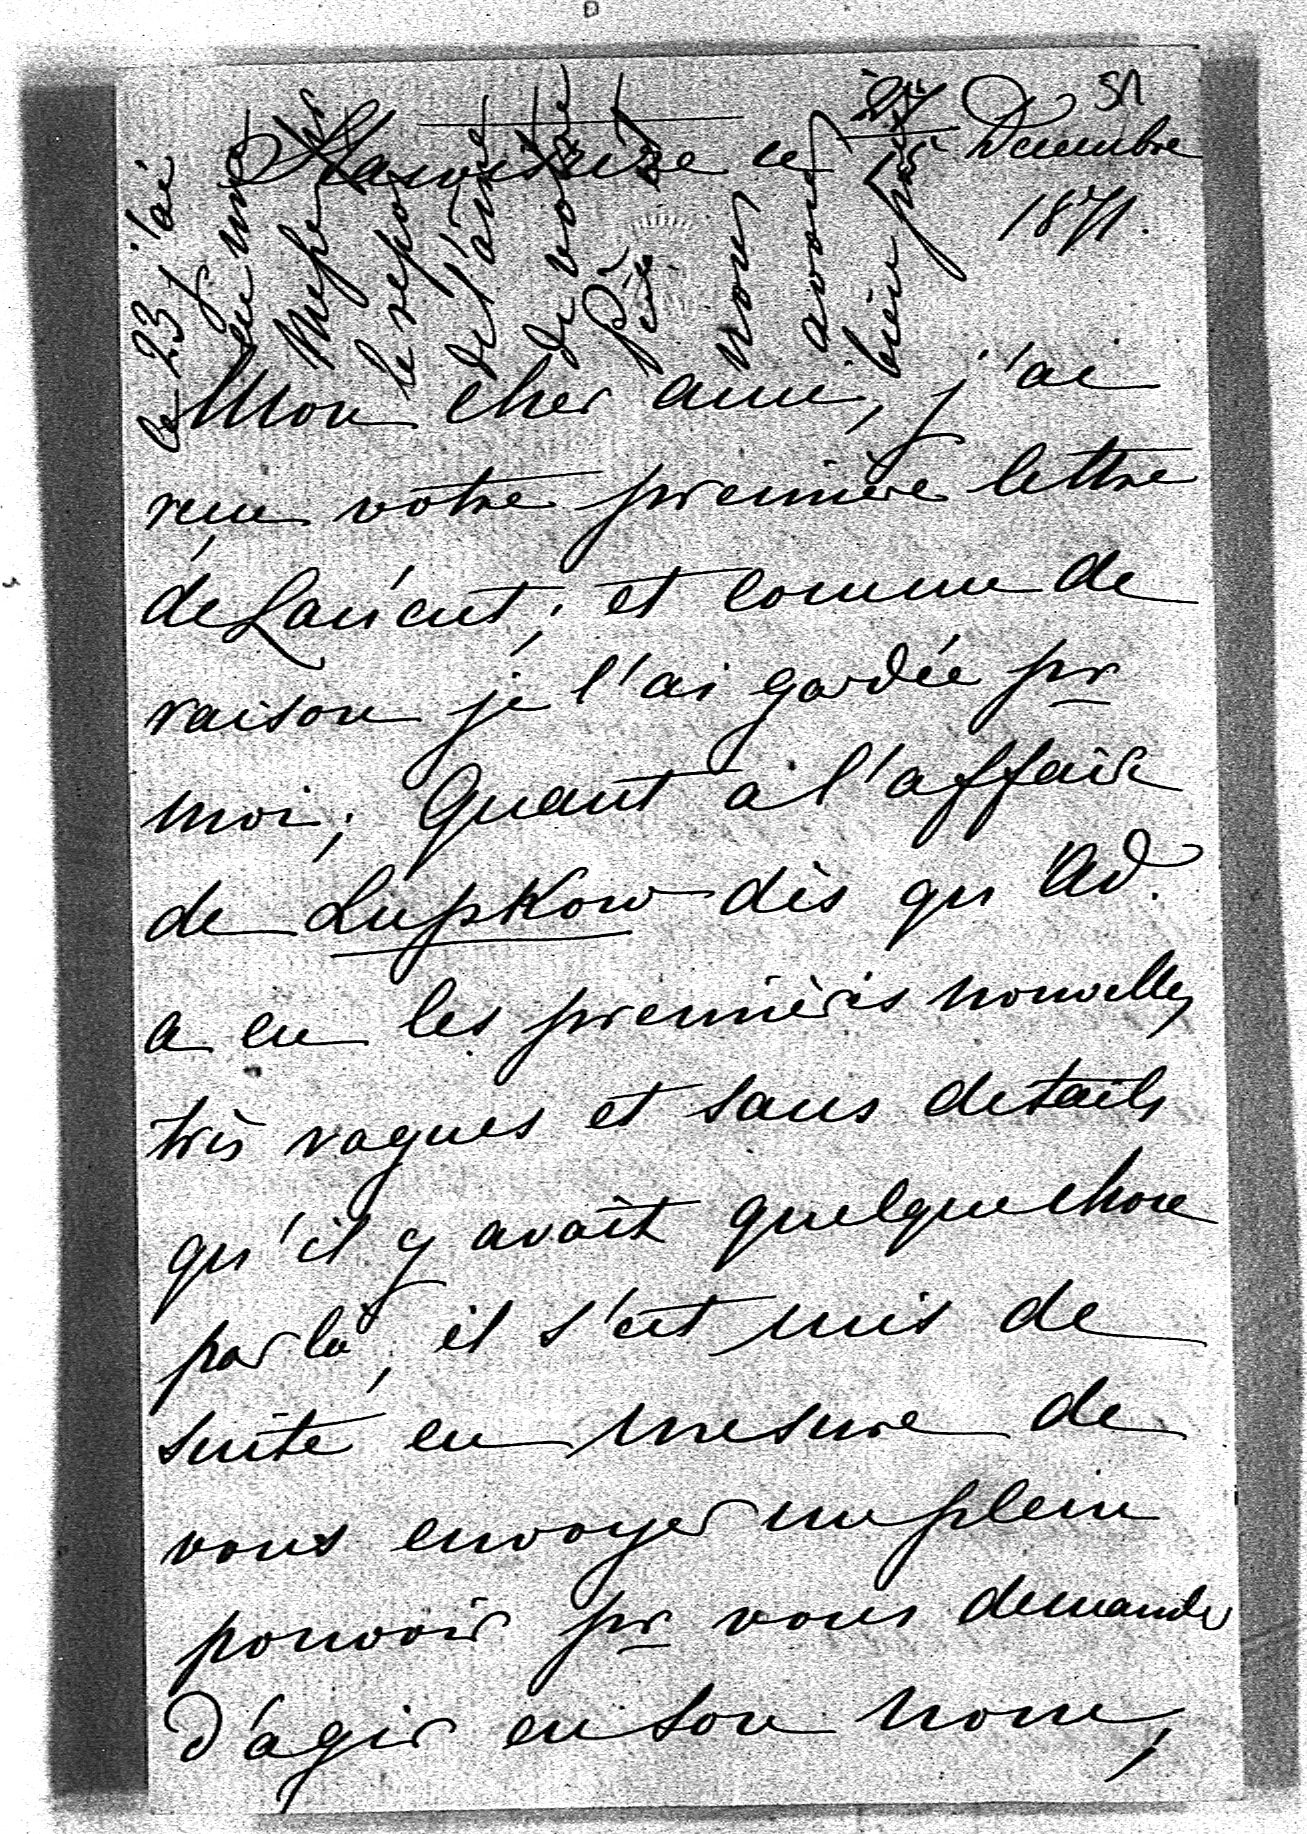 ce 27 Decembre
1871.
Mon cher ami, j'ai
reçu votre première lettre
de Łańcut; et comme de
raison je l'ai gardée pr
moi; Quant à l'affaire
de Lupkow dès qu'Ad.
a eu les premières nouvelles
très vagues et sans details
qu'il y avait quelque chose
par là, il s'est mis de
suite en mesure de
vous envoyer un plein
pouvoir pr vous demander
d'agir en son nom,
le 23 j'ai
eu une
Messe pr
le repos
de l'âme
de votre
Père
nous
avons
bien prié